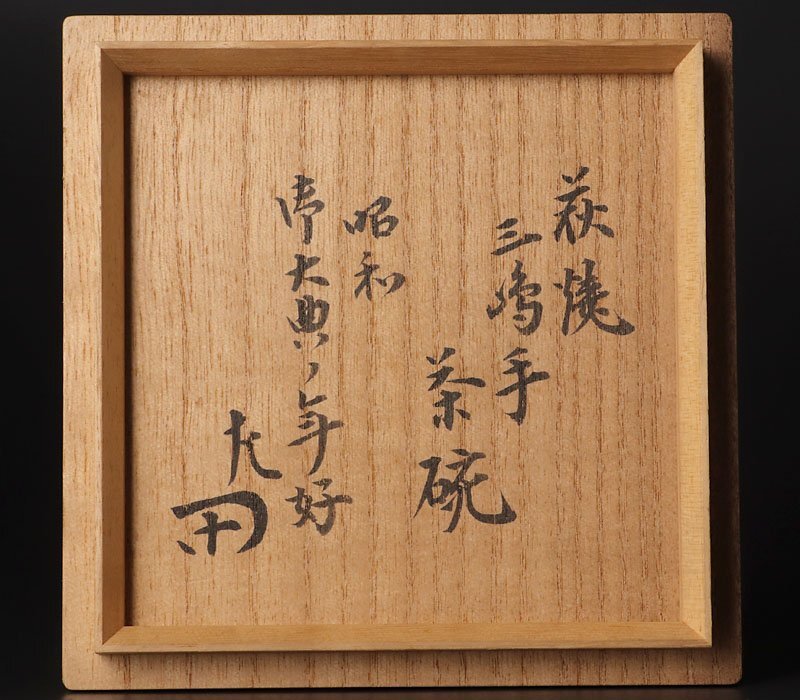 萩焼
三嶋手
茶碗
昭和
御大典ノ年好
左